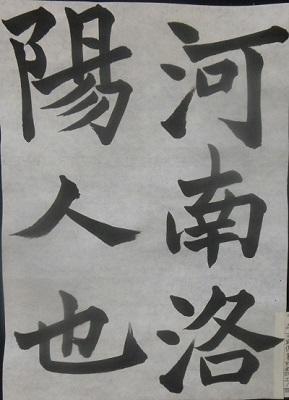 河南洛
陽人也